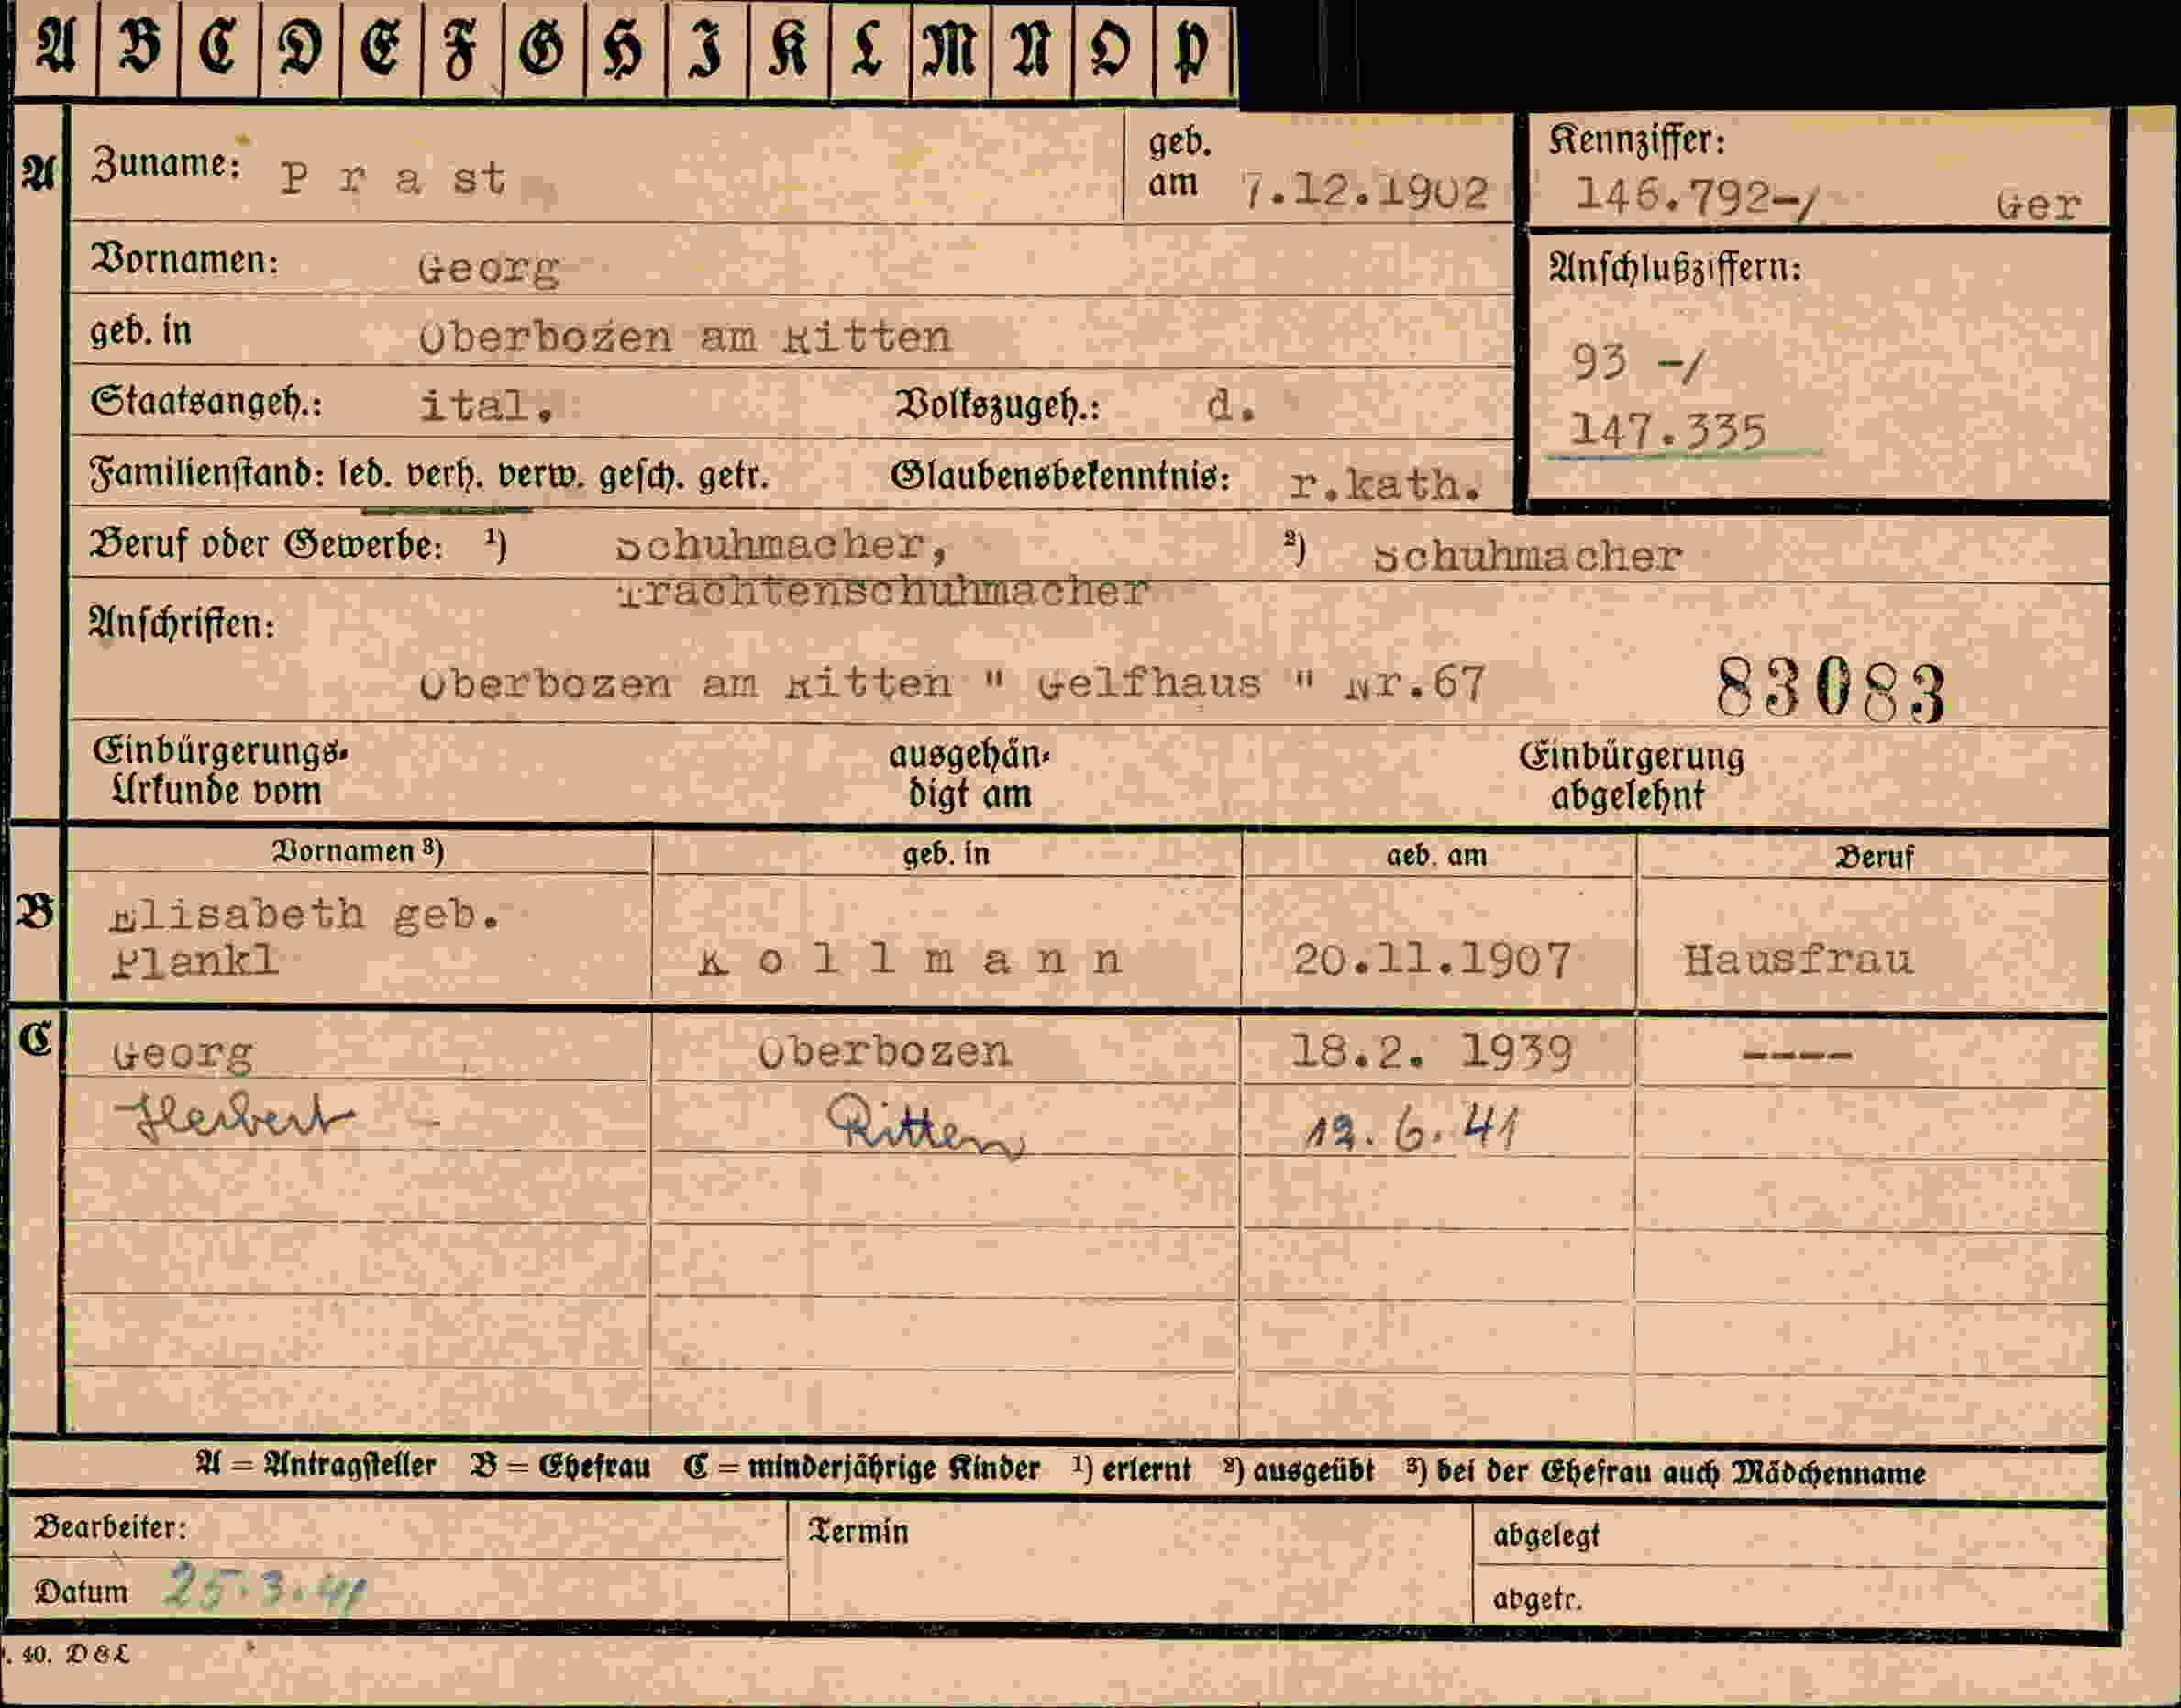 A B C D E F G H I K L M N O P
A
Zuname: P r a st
geb. am 7.12.1902
Kennziffer:
146.792-/ Ger
Vornamen: Georg
Anschlußziffern:
geb. in Oberbozen am Ritten
93 -/
Staatsangeh.: ital. Volkszugeh.: d.
147.335
Familienstand: led. verh. verw. gesch. getr. Glaubensbekenntnis: r.kath.
Beruf oder Gewerbe: ¹) Schuhmacher, ²) Schuhmacher
Trachtenschuhmacher
Anschriften:
Oberbozen am Ritten " Gelfhaus " Nr.67 83083
Einbürgerungs-
Urkunde vom
ausgehän-
digt am
Einbürgerung
abgelehnt
Vornamen ³) geb. in geb. am Beruf
B
Elisabeth geb.
Plankl K o l l m a n n 20.11.1907 Hausfrau
C
Georg Oberbozen 18.2. 1939 ----
Herbert Ritten 12.6.41
A = Antragsteller B = Ehefrau C = minderjährige Kinder ¹) erlernt ²) ausgeübt ³) bei der Ehefrau auch Mädchenname
Bearbeiter: Termin abgelegt
Datum 25.3.41 abgetr.
. 40. D&L